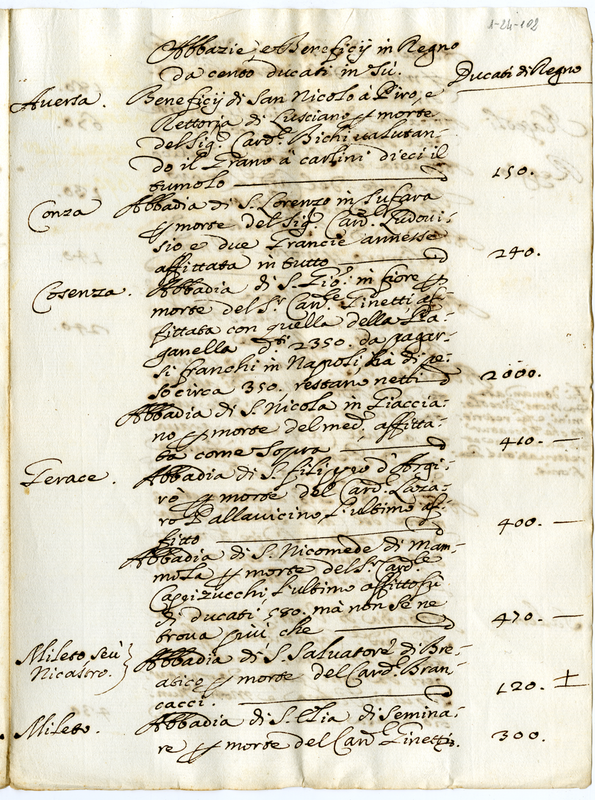 1-24-102
Abbazie, e Beneficij in Regno
da cento ducati in sù.
Ducati di Regno
Aversa. Beneficij di San Nicolo à Piro, e
Rettoria di Lusciano p morte
del Sig. Card. Bichi valutan-
do il Grano à carlini dieci il
tumolo 150.
Conza Abbadia di S. Lorenzo in
p morte del Sig. Card. Ludovi-
sio e due Grancie annesse
affittata in tutto 240.
Cosenza. Abbadia di S. Gio: in fiore p
morte del S.r Card.le Ginetti af-
fittata con quella della
d.ti 2350. da pagar-
si franchi in Napoli, hà di pe-
so circa 350. restano netti 2000.
Abbadia di S. Nicola in
no p morte del med. affitta-
ta come sopra 410. —
Gerace. Abbadia di S. Filippo d'Argi-
rò p morte del Card. Laza-
ro Pallavicino l'ultimo af-
fitto 400. —
Abbadia di S. Nicomede di Mam-
mola p morte del S.r Card.le
Capizucchi l'ultimo affitto fù
di ducati 580. mà non se ne
trova più che 470. —
Mileto seù
Nicastro. Abbadia di S. Salvatore di
p morte del Card. Bran-
cacci. 120.
Mileto. Abbadia di S. Elia di Semina-
re p morte del Card. Ginetti. 300.